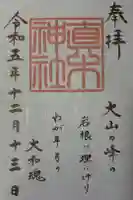 奉拝
大山の峰の
岩根に埋いけり
わが年月の
大和魂
真木神社
令和五年十二月十三日